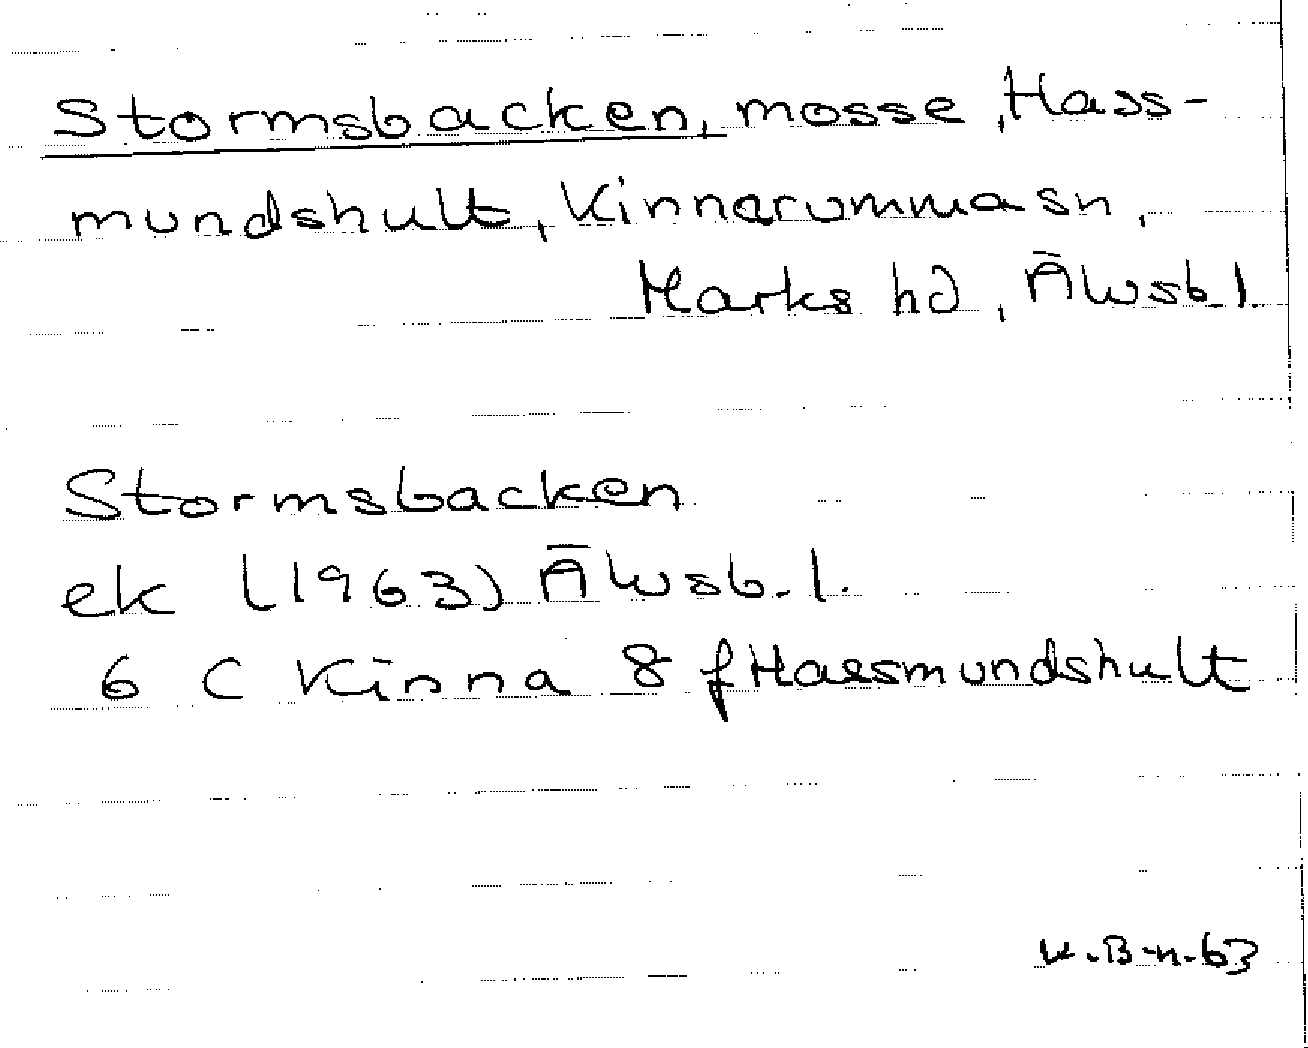 Stormsbacken, mosse, Hass-
mundshult, Kinnarumma sn,
Marks hd, Älvsb. l.
Stormsbacken
ek (1963) Älvsb. l.
6 C Kinna 8 f Hassmundshult
K. B-n. 63